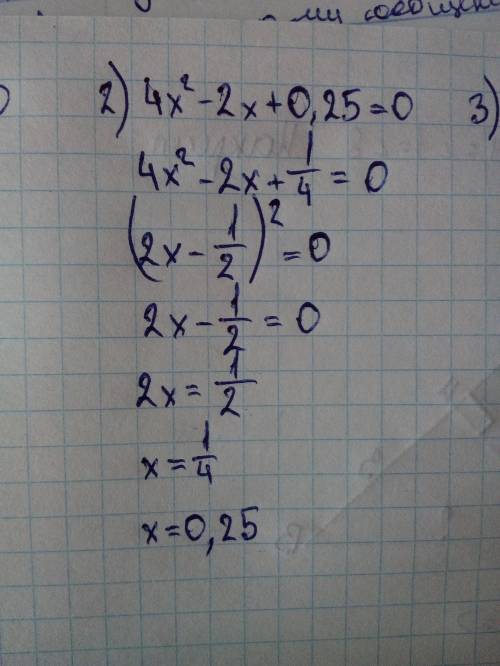 ми сообщени
2) 4x² - 2x + 0,25 = 0
3)
4x² - 2x + 1/4 = 0
(2x - 1/2)² = 0
2x - 1/2 = 0
2x = 1/2
x = 1/4
x = 0,25